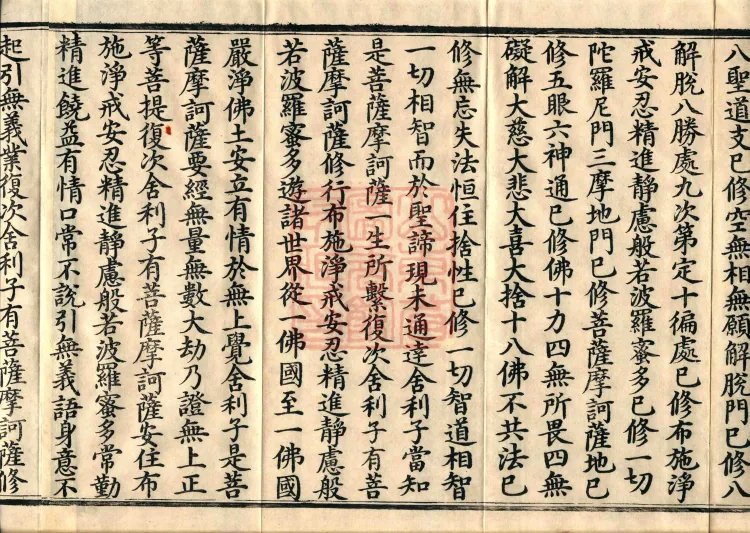 八聖道支已修空無相無願解脫門已修八
解脫八勝處九次第定十徧處已修布施淨
戒安忍精進靜慮般若波羅蜜多已修一切
陀羅尼門三摩地門已修菩薩摩訶薩地已
修五眼六神通已修佛十力四無所畏四無
礙解大慈大悲大喜大捨十八佛不共法已
修無忘失法恒住捨性已修一切智道相智
一切相智而於聖諦現未通達舍利子當知
是菩薩摩訶薩一生所繫復次舍利子有菩
薩摩訶薩修行布施淨戒安忍精進靜慮般
若波羅蜜多遊諸世界從一佛國至一佛國
嚴淨佛土安立有情於無上覺舍利子是菩
薩摩訶薩要經無量無數大劫乃證無上正
等菩提復次舍利子有菩薩摩訶薩安住布
施淨戒安忍精進靜慮般若波羅蜜多常勤
精進饒益有情口常不說引無義語身意不
起引無義業復次舍利子有菩薩摩訶薩修